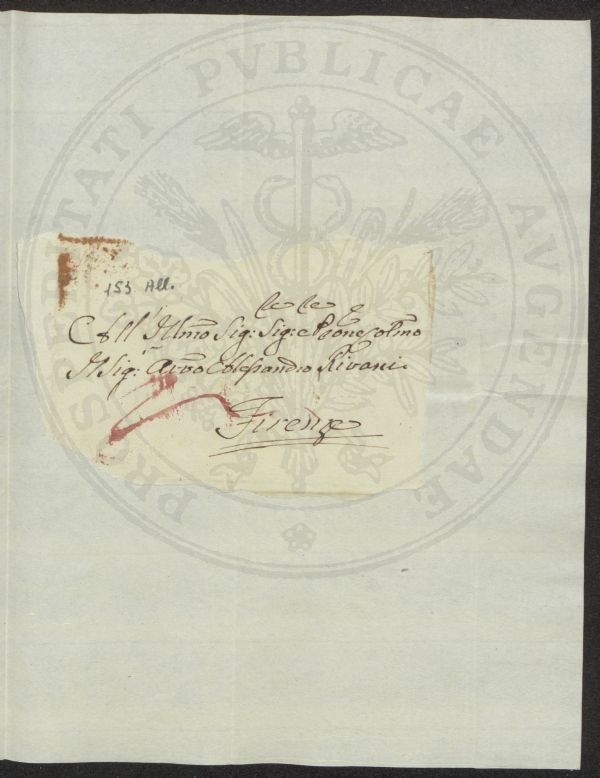 PROSPERITATI PVBLICAE AVGENDAE
153 All.
All' Illmo Sig: Sig: e Prone Colmo
Il Sig: Avvo Alessandro Rivani
Firenze